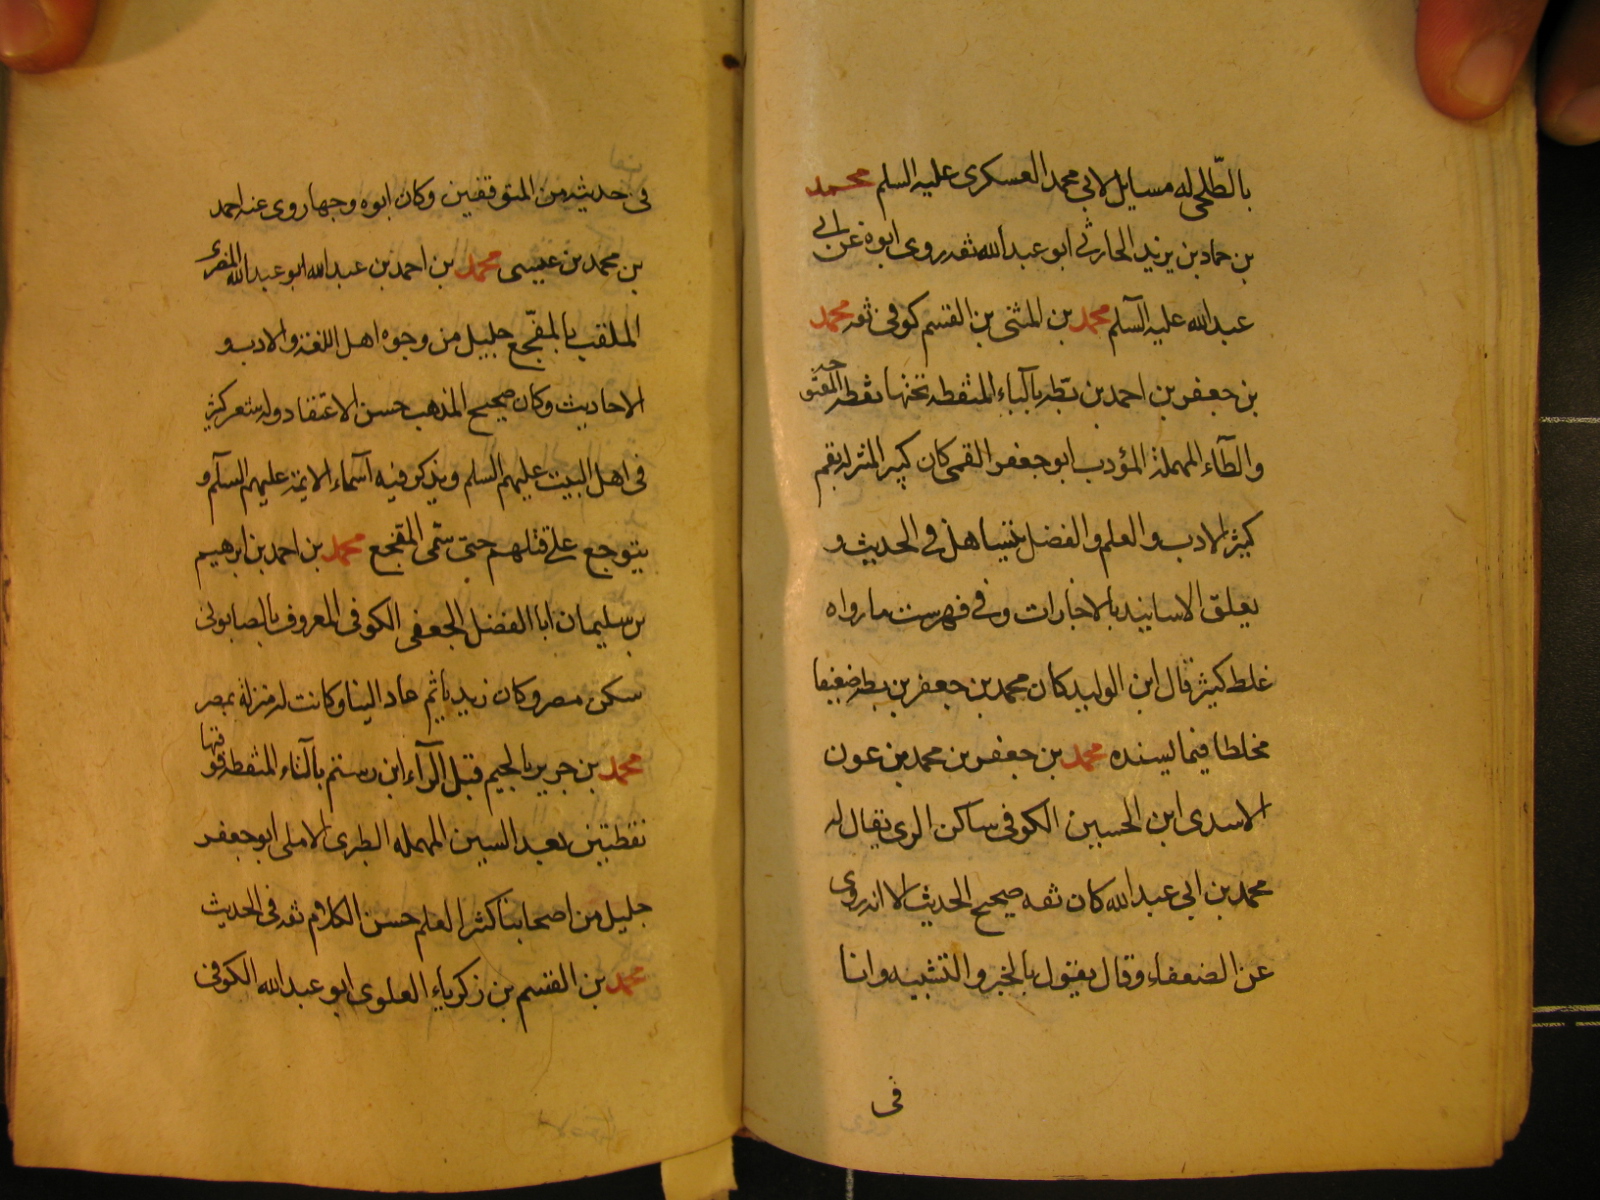 بالطّلحى له مسايل لابى محمد العسكرى عليه السلم محمد
بن حماد بن يزيد الحارثى ابو عبدالله ثقه روى ابوه عن ابى
عبدالله عليه السلم محمد بن المثنى بن القسم كوفى ثقه محمد
بن جعفر بن احمد بن بطه بالباء المنقطه تحتها نقطه
والطاء المهملة المؤدب ابو جعفر القمى كان كبير المنزله بقم
كثير الادب والعلم والفضل يتساهل فى الحديث و
يعلق الاسانيد بالاجازات وفى فهرست ما رواه
غلط كثير قال ابن الوليد كان محمد بن جعفر بن بطه ضعيفا
مخلطا فيما يسنده محمد بن جعفر بن محمد بن عون
الاسدى ابن الحسين الكوفى ساكن الرى يقال له
محمد بن ابى عبدالله كان ثقه صحيح الحديث الا انه روى
عن الضعفاء وقال يقول بالجبر والتشبيه وانا
فى
فى حديثه من المتوقفين وكان ابوه وجها روى عنه احمد
بن محمد بن عيسى محمد بن احمد بن عبدالله ابو عبدالله
الملقب بالمفجّع جليل من وجوه اهل اللغة والادب و
الاحاديث وكان صحيح المذهب حسن الاعتقاد وله شعر كثير
فى اهل البيت عليهم السلم ويذكر فيه اسماء الائمة عليهم السلم و
يتوجع على قتلهم حتى سمى المفجع محمد بن احمد بن ابرهيم
بن سليمان ابا الفضل الجعفى الكوفى المعروف بالصابونى
سكن مصر وكان زيديا ثم عاد الينا وكانت له منزلة بمصر
محمد بن جرير بالجيم قبل الراء ابن رستم بالتاء المنقطه فوقها
نقطتين بعد السين المهمله الطبرى الاملى ابو جعفر
جليل من اصحابنا كثير العلم حسن الكلام ثقه فى الحديث
محمد بن القسم بن زكرياء العلوى ابو عبدالله الكوفى